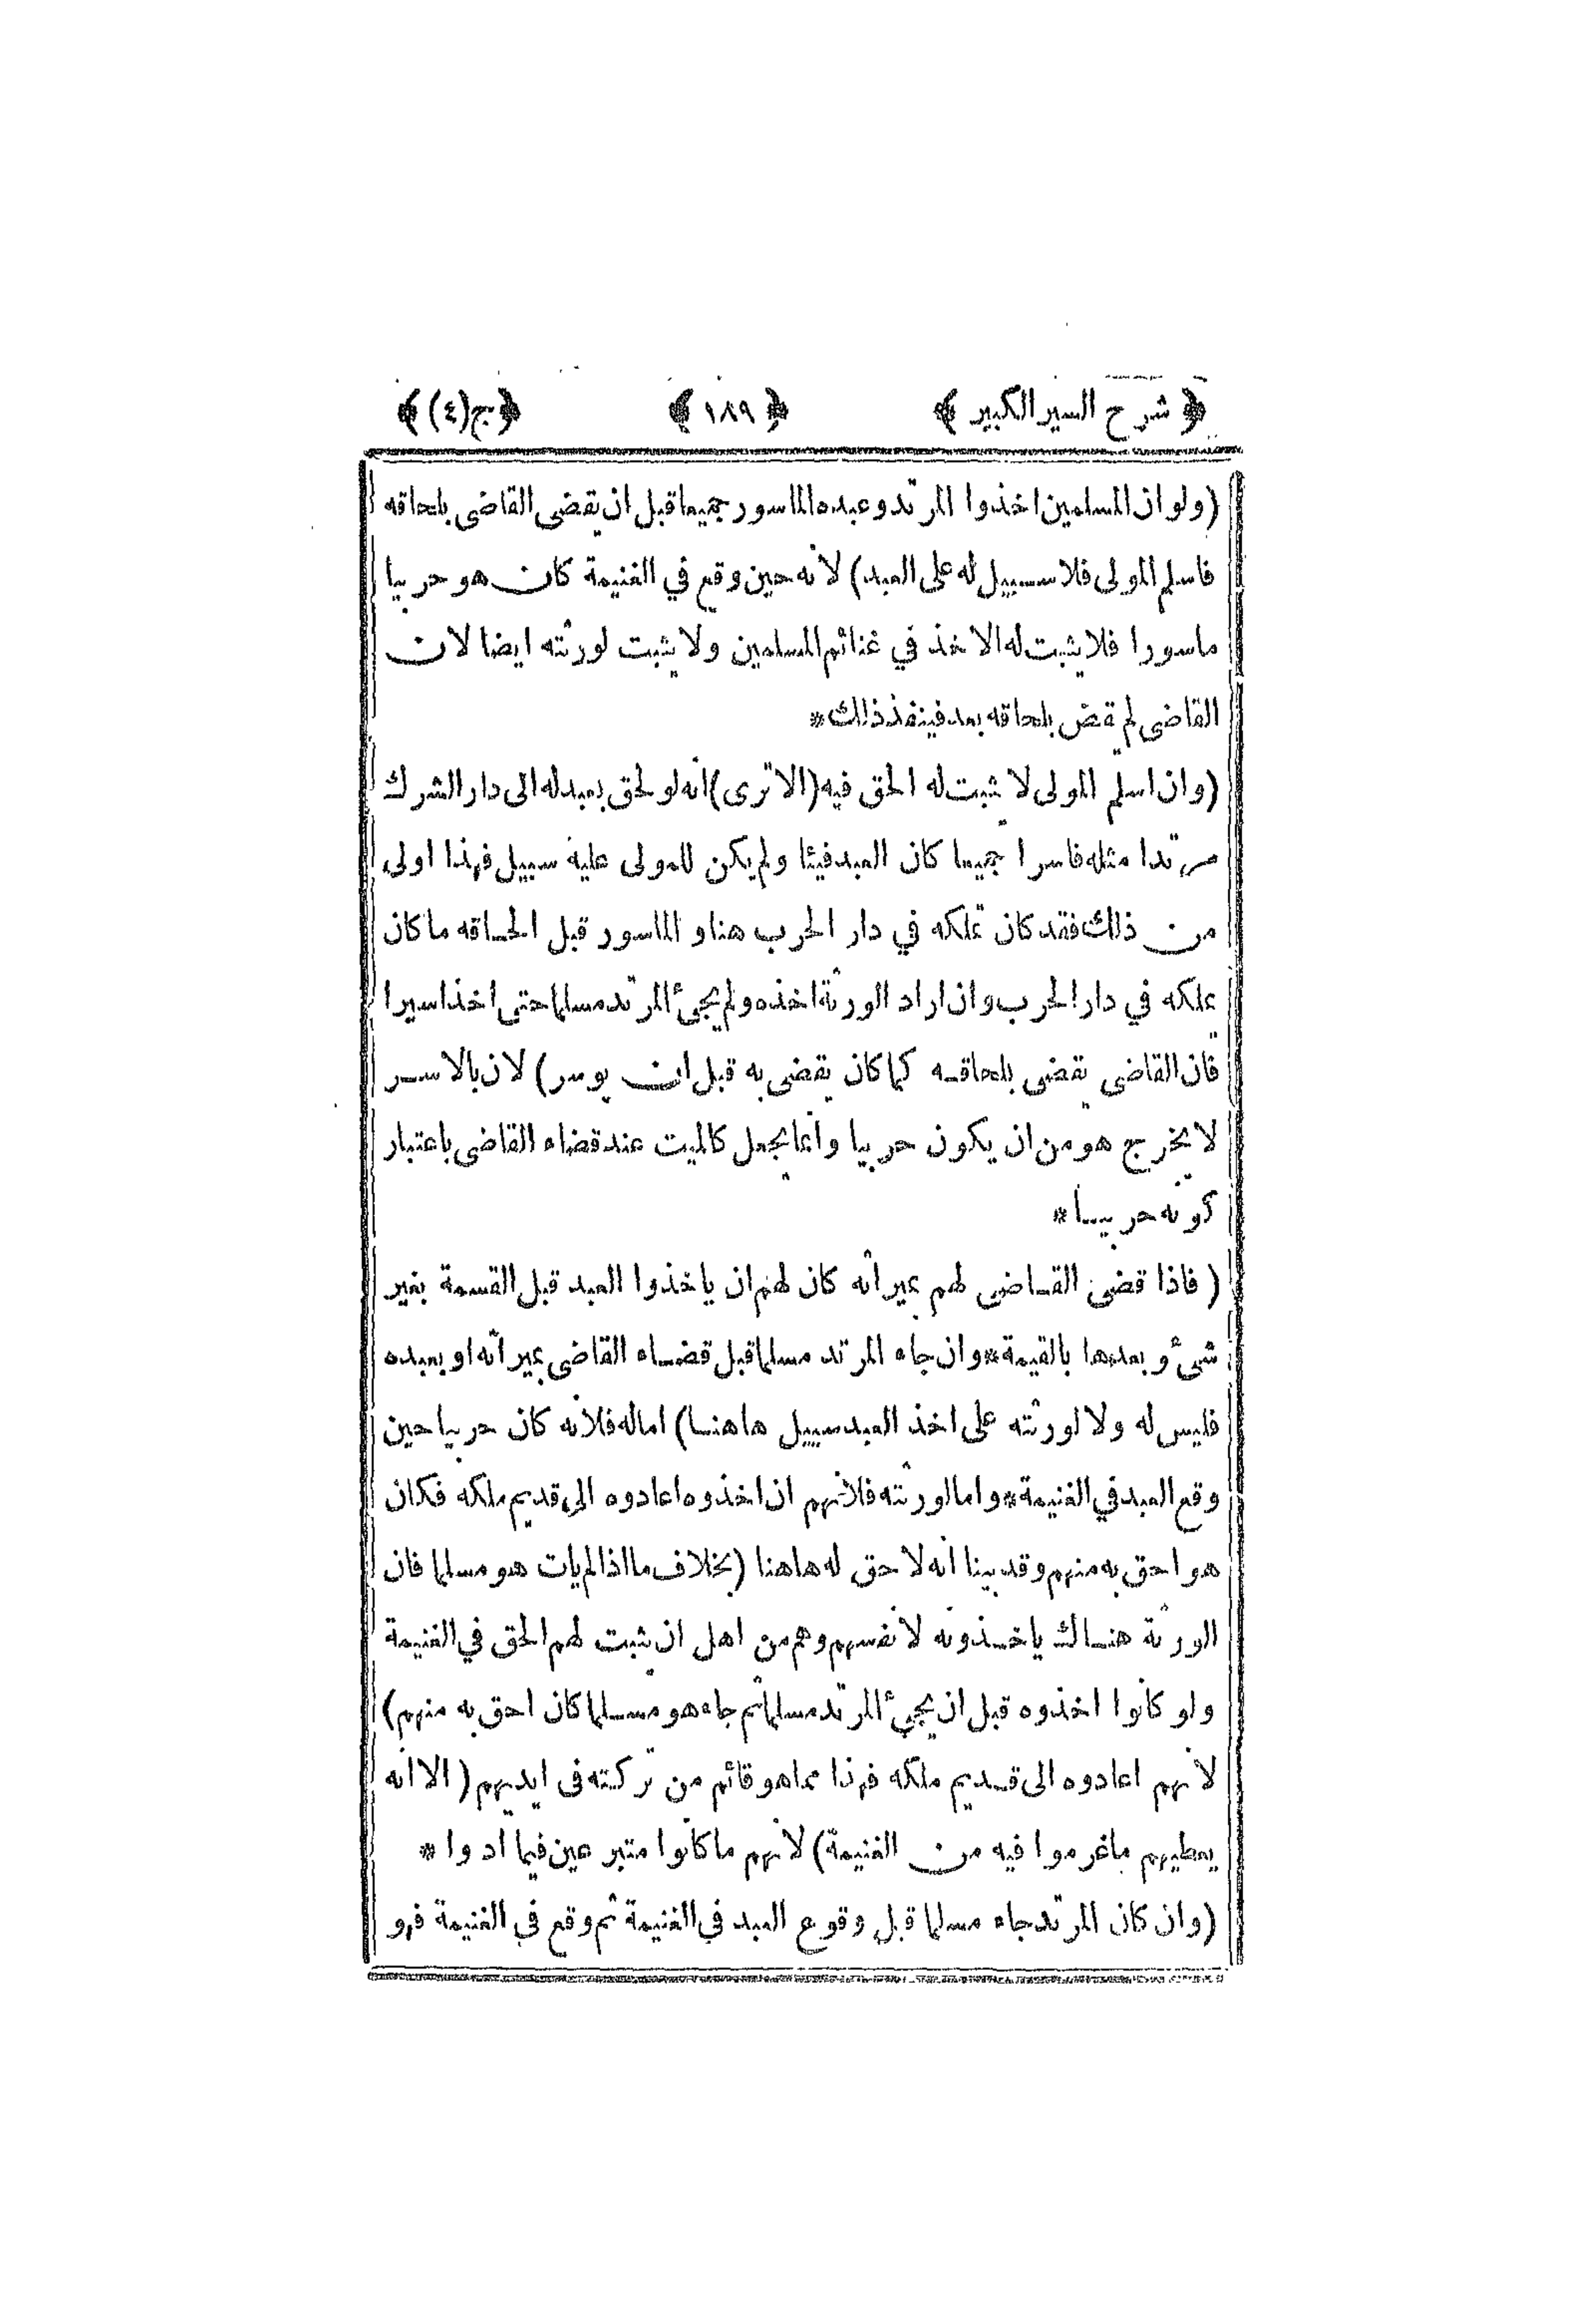 ﴿ شرح السير الكبير ﴾ ﴿ ١٨٩ ﴾ ﴿ ج (٤) ﴾
(ولو ان المسلمين اخذوا المرتد وعبده الماسور جميعا قبل ان يقضى القاضى بلحاقه
فاسلم المولى فلا سبيل له على العبد) لانه حين وقع في الغنيمة كان هو حربيا
ماسورا فلا يثبت له الاخذ في غنائم المسلمين ولا يثبت لورثته ايضا لان
القاضى لم يقض بلحاقه بعد فينفذ ذلك *
(وان اسلم المولى لا يثبت له الحق فيه (الا ترى) انه لو لحق بعبد له الى دار الشرك
مرتدا مثله فاسرا جميعا كان العبد فيئا ولم يكن للمولى عليه سبيل فهذا اولى
من ذلك فقد كان تملكه في دار الحرب هنا و الماسور قبل الحاقه ما كان
يملكه في دار الحرب وان اراد الورثة اخذه ولم يجئ المرتد مسلما حتى اخذ اسيرا
فان القاضى يقضى بلحاقه كما كان يقضى به قبل ان يوسر) لان بالاسر
لا يخرج هو من ان يكون حربيا وانما يجعل كالميت عند قضاء القاضى باعتبار
كونه حربيا *
(فاذا قضى القاضى لهم بميراثه كان لهم ان ياخذوا العبد قبل القسمة بغير
شئ وبعدها بالقيمة * وان جاء المرتد مسلما قبل قضاء القاضى بميراثه او بعبده
فليس له ولا لورثته على اخذ العبد سبيل هاهنا) اما له فلانه كان حربيا حين
وقع العبد في الغنيمة * واما لورثته فلانهم ان اخذوه اعادوه الى قديم ملكه فكان
هو احق به منهم وقد بينا انه لا حق له هاهنا (بخلاف ما اذا لم يات هو مسلما فان
الورثة هناك ياخذونه لانفسهم وهم من اهل ان يثبت لهم الحق في الغنيمة
ولو كانوا اخذوه قبل ان يجئ المرتد مسلما ثم جاء هو مسلما كان احق به منهم)
لانهم اعادوه الى قديم ملكه فهذا مما هو قائم من تركته فى ايديهم (الا انه
يعطيهم ما غرموا فيه من الغنيمة) لانهم ما كانوا متبرعين فيما ادوا *
(وان كان المرتد جاء مسلما قبل وقوع العبد في الغنيمة ثم وقع في الغنيمة فهو